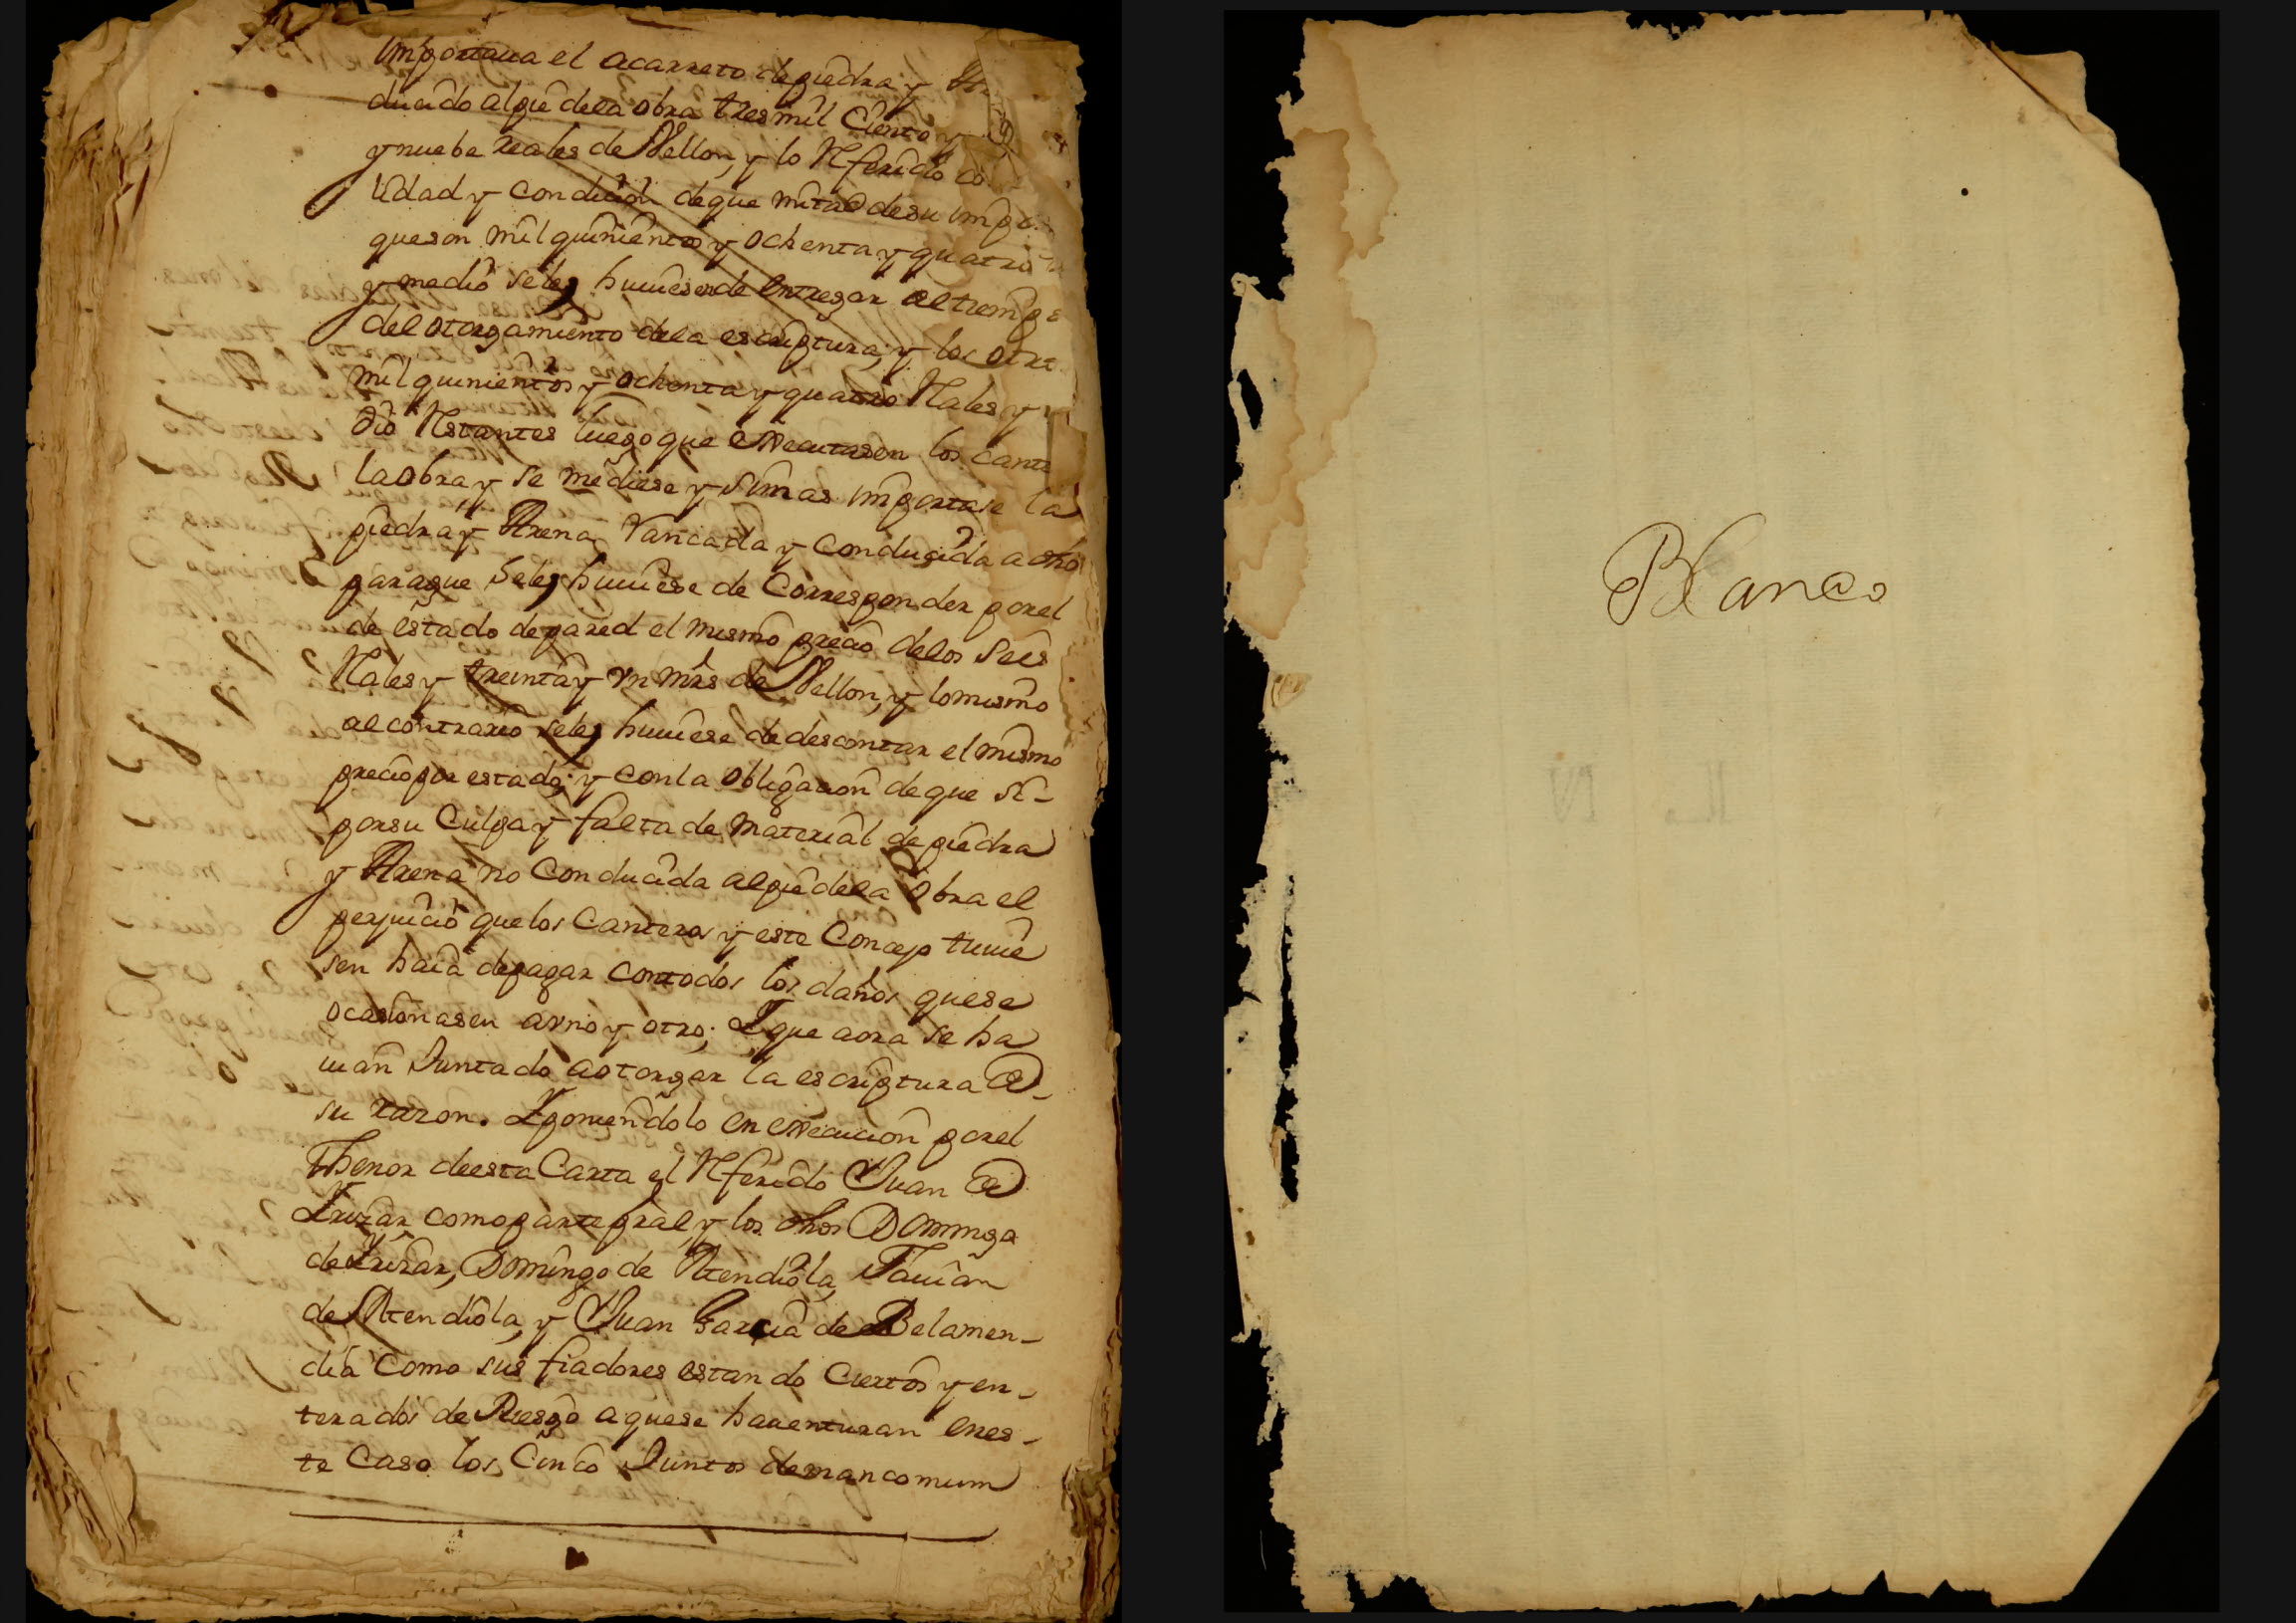 Importaua el acarreto de piedra y
ducido al pie de la obra tres mil Ciento y
y nuebe reales de Vellon, y lo Referido co
lidad y condicion de que mitad de su impo
que son mil quinientos y ochenta y quatro
y medio se les huuiesen de entregar al tiempo
del otorgamiento de la escriptura, y los otro
mil quinientos y ochenta y quatro Rales y
dio Restantes luego que executasen los cante
la obra y se mediese y si mas importase la
piedra y Arena rancada y conducida a dho
para que se les huuiese de Corresponder por el
de estado de pared el mismo precio de los seis
Rales y treinta y un mrs de Vellon, y lo mismo
al contrario se les huuiese de descontar el mismo
precio por estado; y con la obligacion de que si-
por su Culpa y falta de material de piedra
y Arena no Conducida al pie de la obra el
perjuicio que los Canteros y este Concejo tuuie
sen haia de pagar con todos los daños que se
ocasionasen a vno y otro; Y que aora se ha
uian Juntado a otorgar la escriptura de-
su razon. Y poniendolo en execucion por el
Thenor de esta Carta el Referido Juan de
Yrizar, como parte pral, y los dhos Domingo
de Yrizar, Domingo de Atendiola, Fauian
de Atendiola, y Juan Garcia de Belamen-
dia como sus fiadores estando Ciertos y en-
terados de Riesgo a que se hauenturan en es-
te Caso los Cinco Juntos de mancomum
Blanco